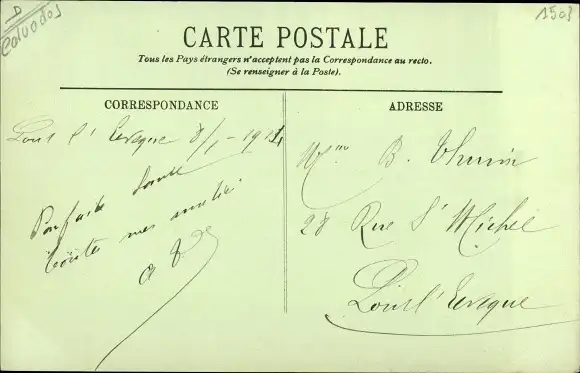 D
Calvados
1503
CARTE POSTALE
Tous les Pays étrangers n'acceptent pas la Correspondance au recto.
(Se renseigner à la Poste).
CORRESPONDANCE
ADRESSE
Pont l'Eveque 8/1-1914
Parfaite Santé
toutes mes amitiés
Mme B. Thurin
28 Rue St Michel
Pont l'Eveque